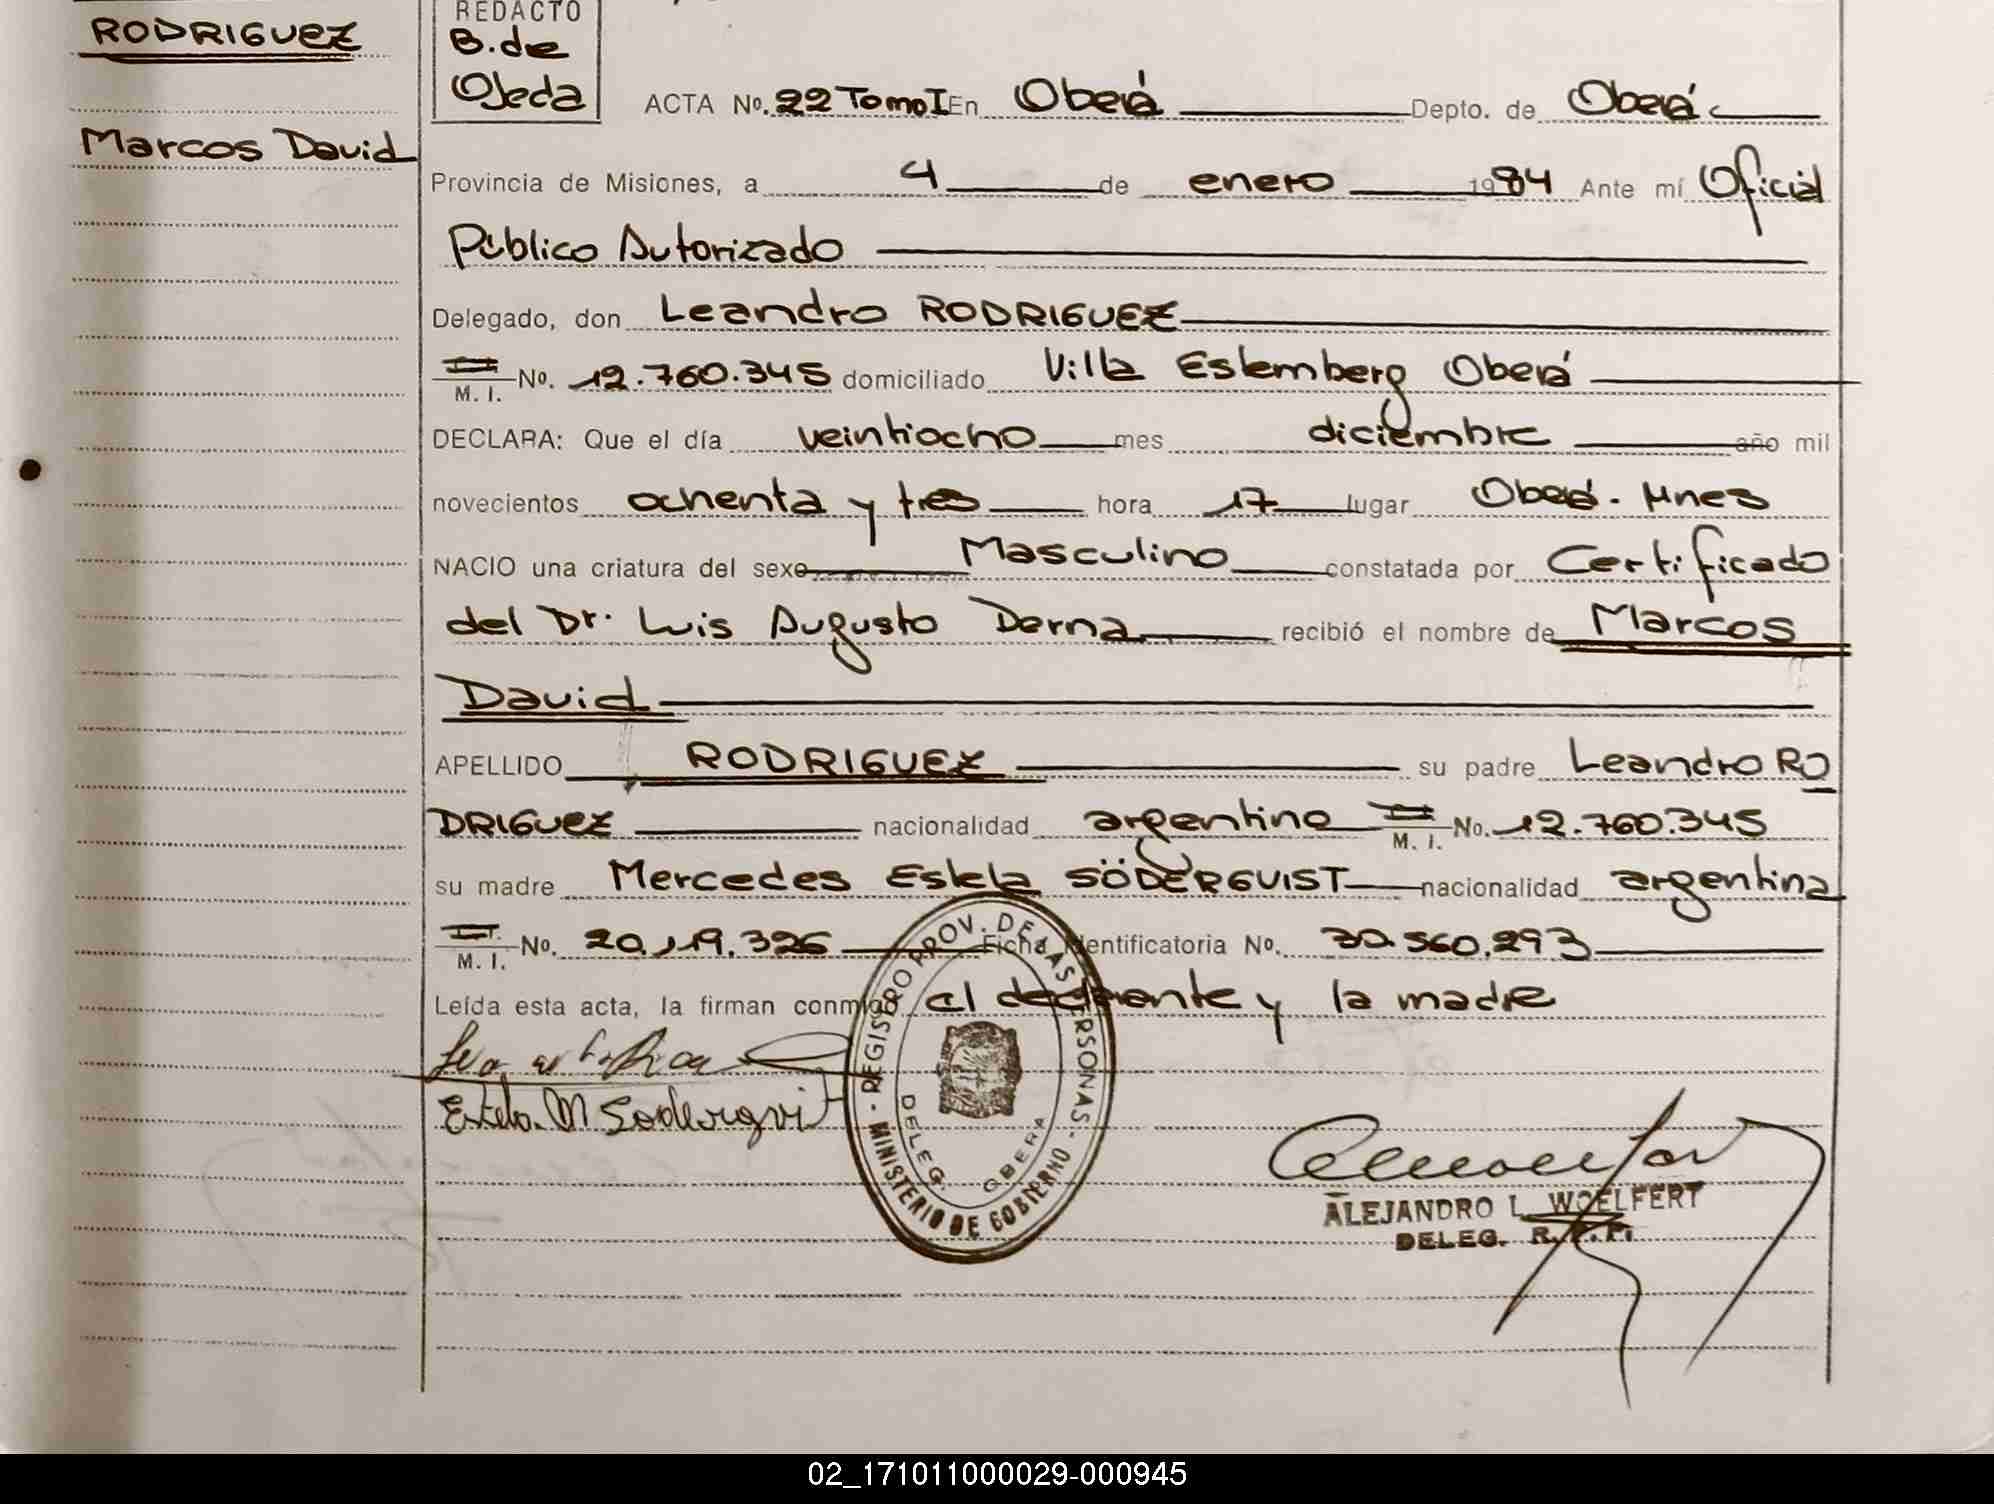 RODRIGUEZ
Marcos David
REDACTO
B. de
Ojeda
ACTA No. 22 Tomo I En Oberá Depto. de Oberá
Provincia de Misiones, a 4 de enero 1984 Ante mí Oficial
Público Autorizado
Delegado, don Leandro RODRIGUEZ
M. I. No. 12.760.345 domiciliado Villa Estemberg Oberá
DECLARA: Que el día veintiocho mes diciembre año mil
novecientos ochenta y tres hora 17 lugar Oberá - Mnes
NACIO una criatura del sexo Masculino constatada por Certificado
del Dr. Luis Augusto Derna recibió el nombre de Marcos
David
APELLIDO RODRIGUEZ su padre Leandro RO
DRIGUEZ nacionalidad argentino M. I. No. 12.760.345
su madre Mercedes Estela SÖDERGUIST nacionalidad argentina
M. I. No. 20.119.326 Ficha Identificatoria No. 30.560.293
Leída esta acta, la firman conmigo el declarante y la madre
Estela M Soderqvist
REGISTRO PROV. DE LAS PERSONAS - MINISTERIO DE GOBIERNO -
DELEG. OBERA
ALEJANDRO L. WOELFERT
DELEG. R.P.P.
02_171011000029-000945